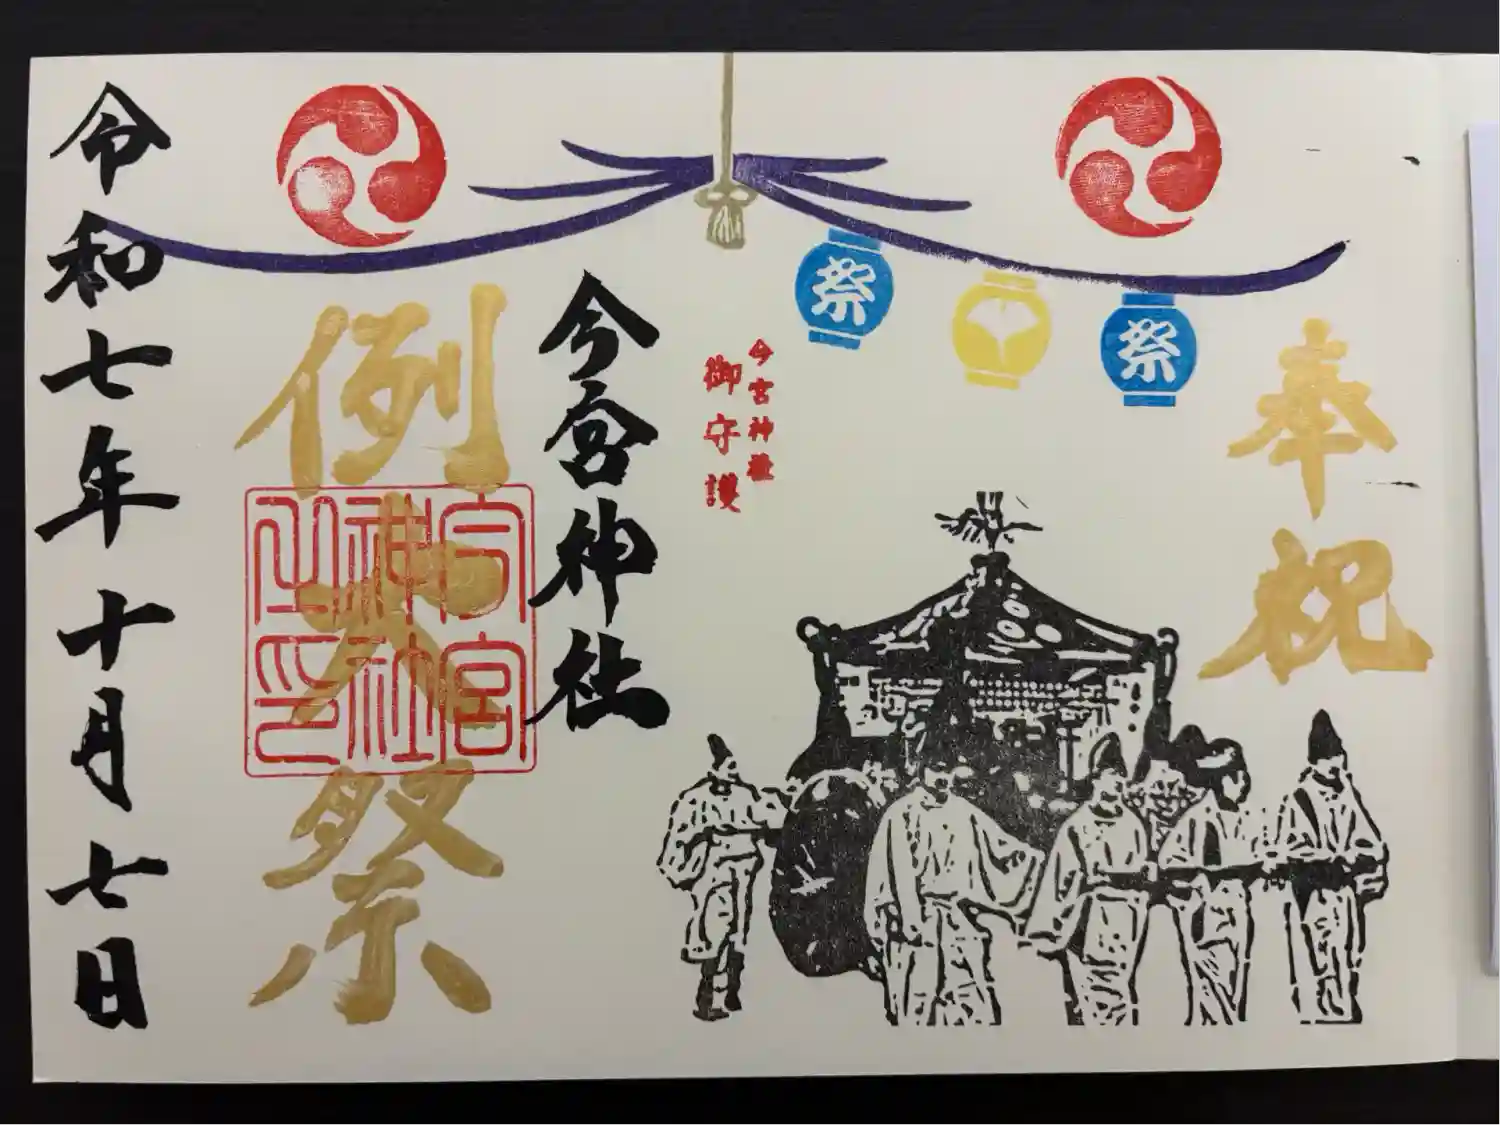 奉祝
祭
祭
今宮神社
御守護
今宮神社
例大祭
今宮
神社
之印
令和七年十月七日